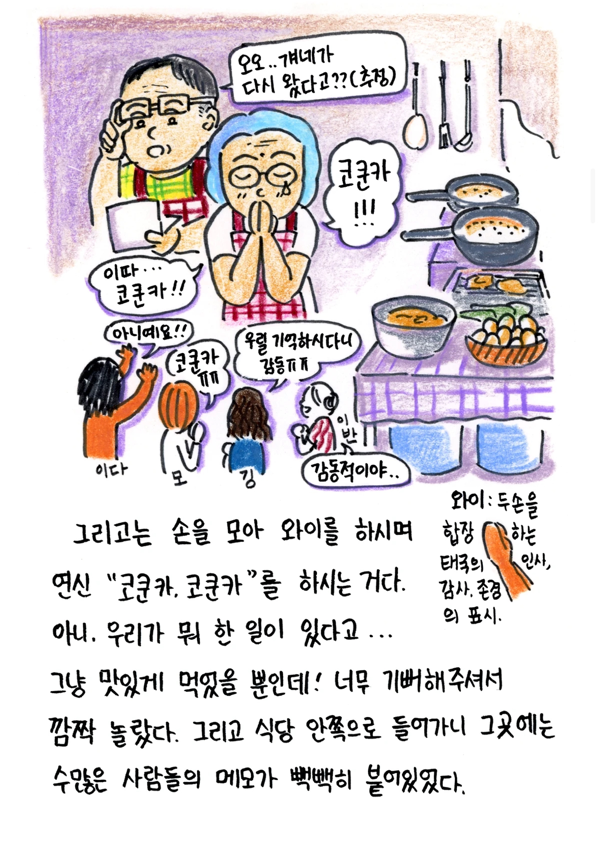 오오.. 걔네가
다시 왔다고??(추정)
코쿤카
!!!
이따...
코쿤카!!
아니예요!!
코쿤카
ㅠㅠ
우릴 기억하시다니
감동ㅠㅠ
감동적이야..
이다
모
깅
이반
와이: 두손을
합장 하는
태국의 인사,
감사, 존경
의 표시.
그리고는 손을 모아 와이를 하시며
연신 "코쿤카, 코쿤카"를 하시는 거다.
아니, 우리가 뭐 한 일이 있다고...
그냥 맛있게 먹었을 뿐인데! 너무 기뻐해주셔서
깜짝 놀랐다. 그리고 식당 안쪽으로 들어가니 그곳에는
수많은 사람들의 메모가 빽빽히 붙어있었다.